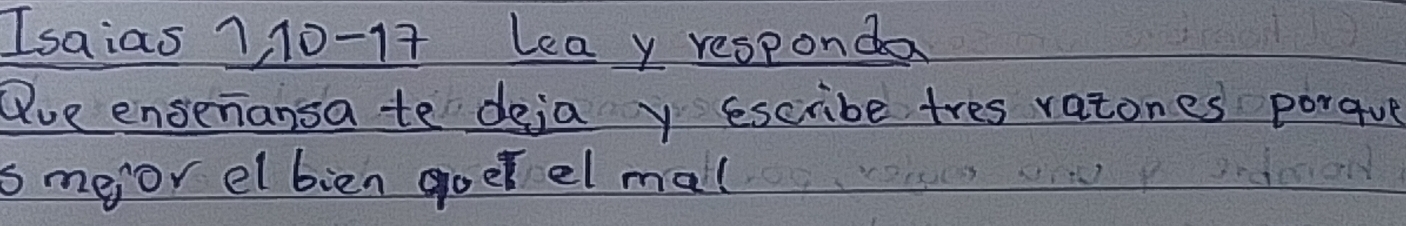 Isaias 1,10-17 Lea y responda
Que enseñansa te deja y escribe tres razones porque
s mejor el bien que el mal